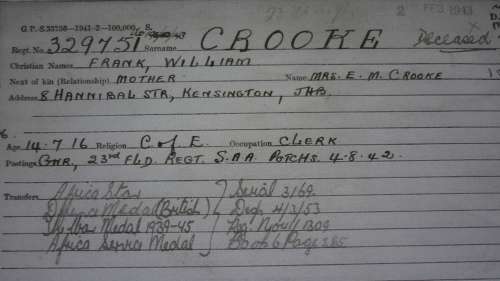 2 FEB 1943
G.P.-S.33758—1941-2—100,000. S.
Regt. No. 329751 Surname CROOKE Deceased
Christian Names FRANK, WILLIAM
Next of kin (Relationship) MOTHER Name MRS. E. M. CROOKE
Address 8 HANNIBAL STR, KENSINGTON, JHB.
Age 14.7.16 Religion C of E. Occupation CLERK
Postings GNR, 23rd FLD. REGT. S.A.A. POTCHS. 4.8.42.
Transfers Africa Star Serial 3169.
Defence Medal (British) Desp. 4/3/53
The War Medal 1939-45
Africa Service Medal Book 6 Page 285